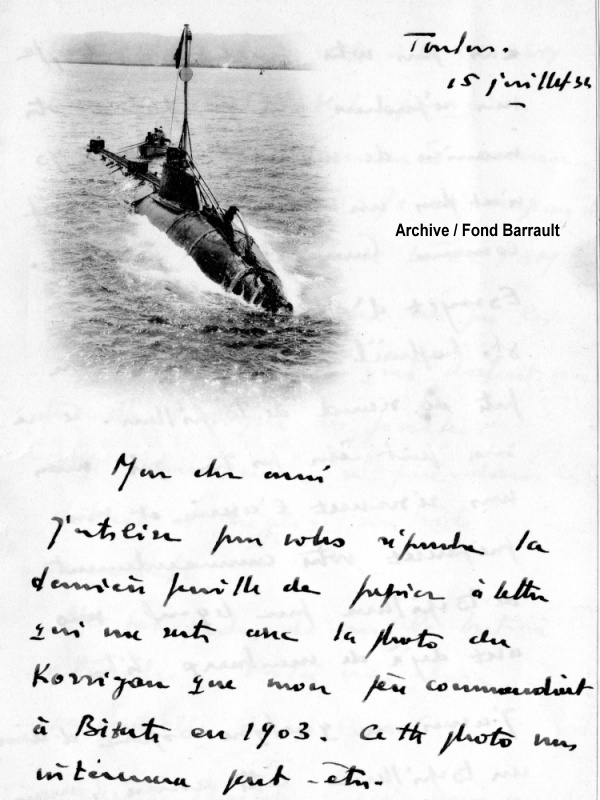 Toulon.
15 juillet 34
Archive / Fond Barrault
Mon cher ami
J'utilise pour vous répondre la
dernière feuille de papier à lettre
qui me reste avec la photo du
Korrigan que mon père commandait
à Bizerte en 1903. Cette photo vous
intéressera peut-être.